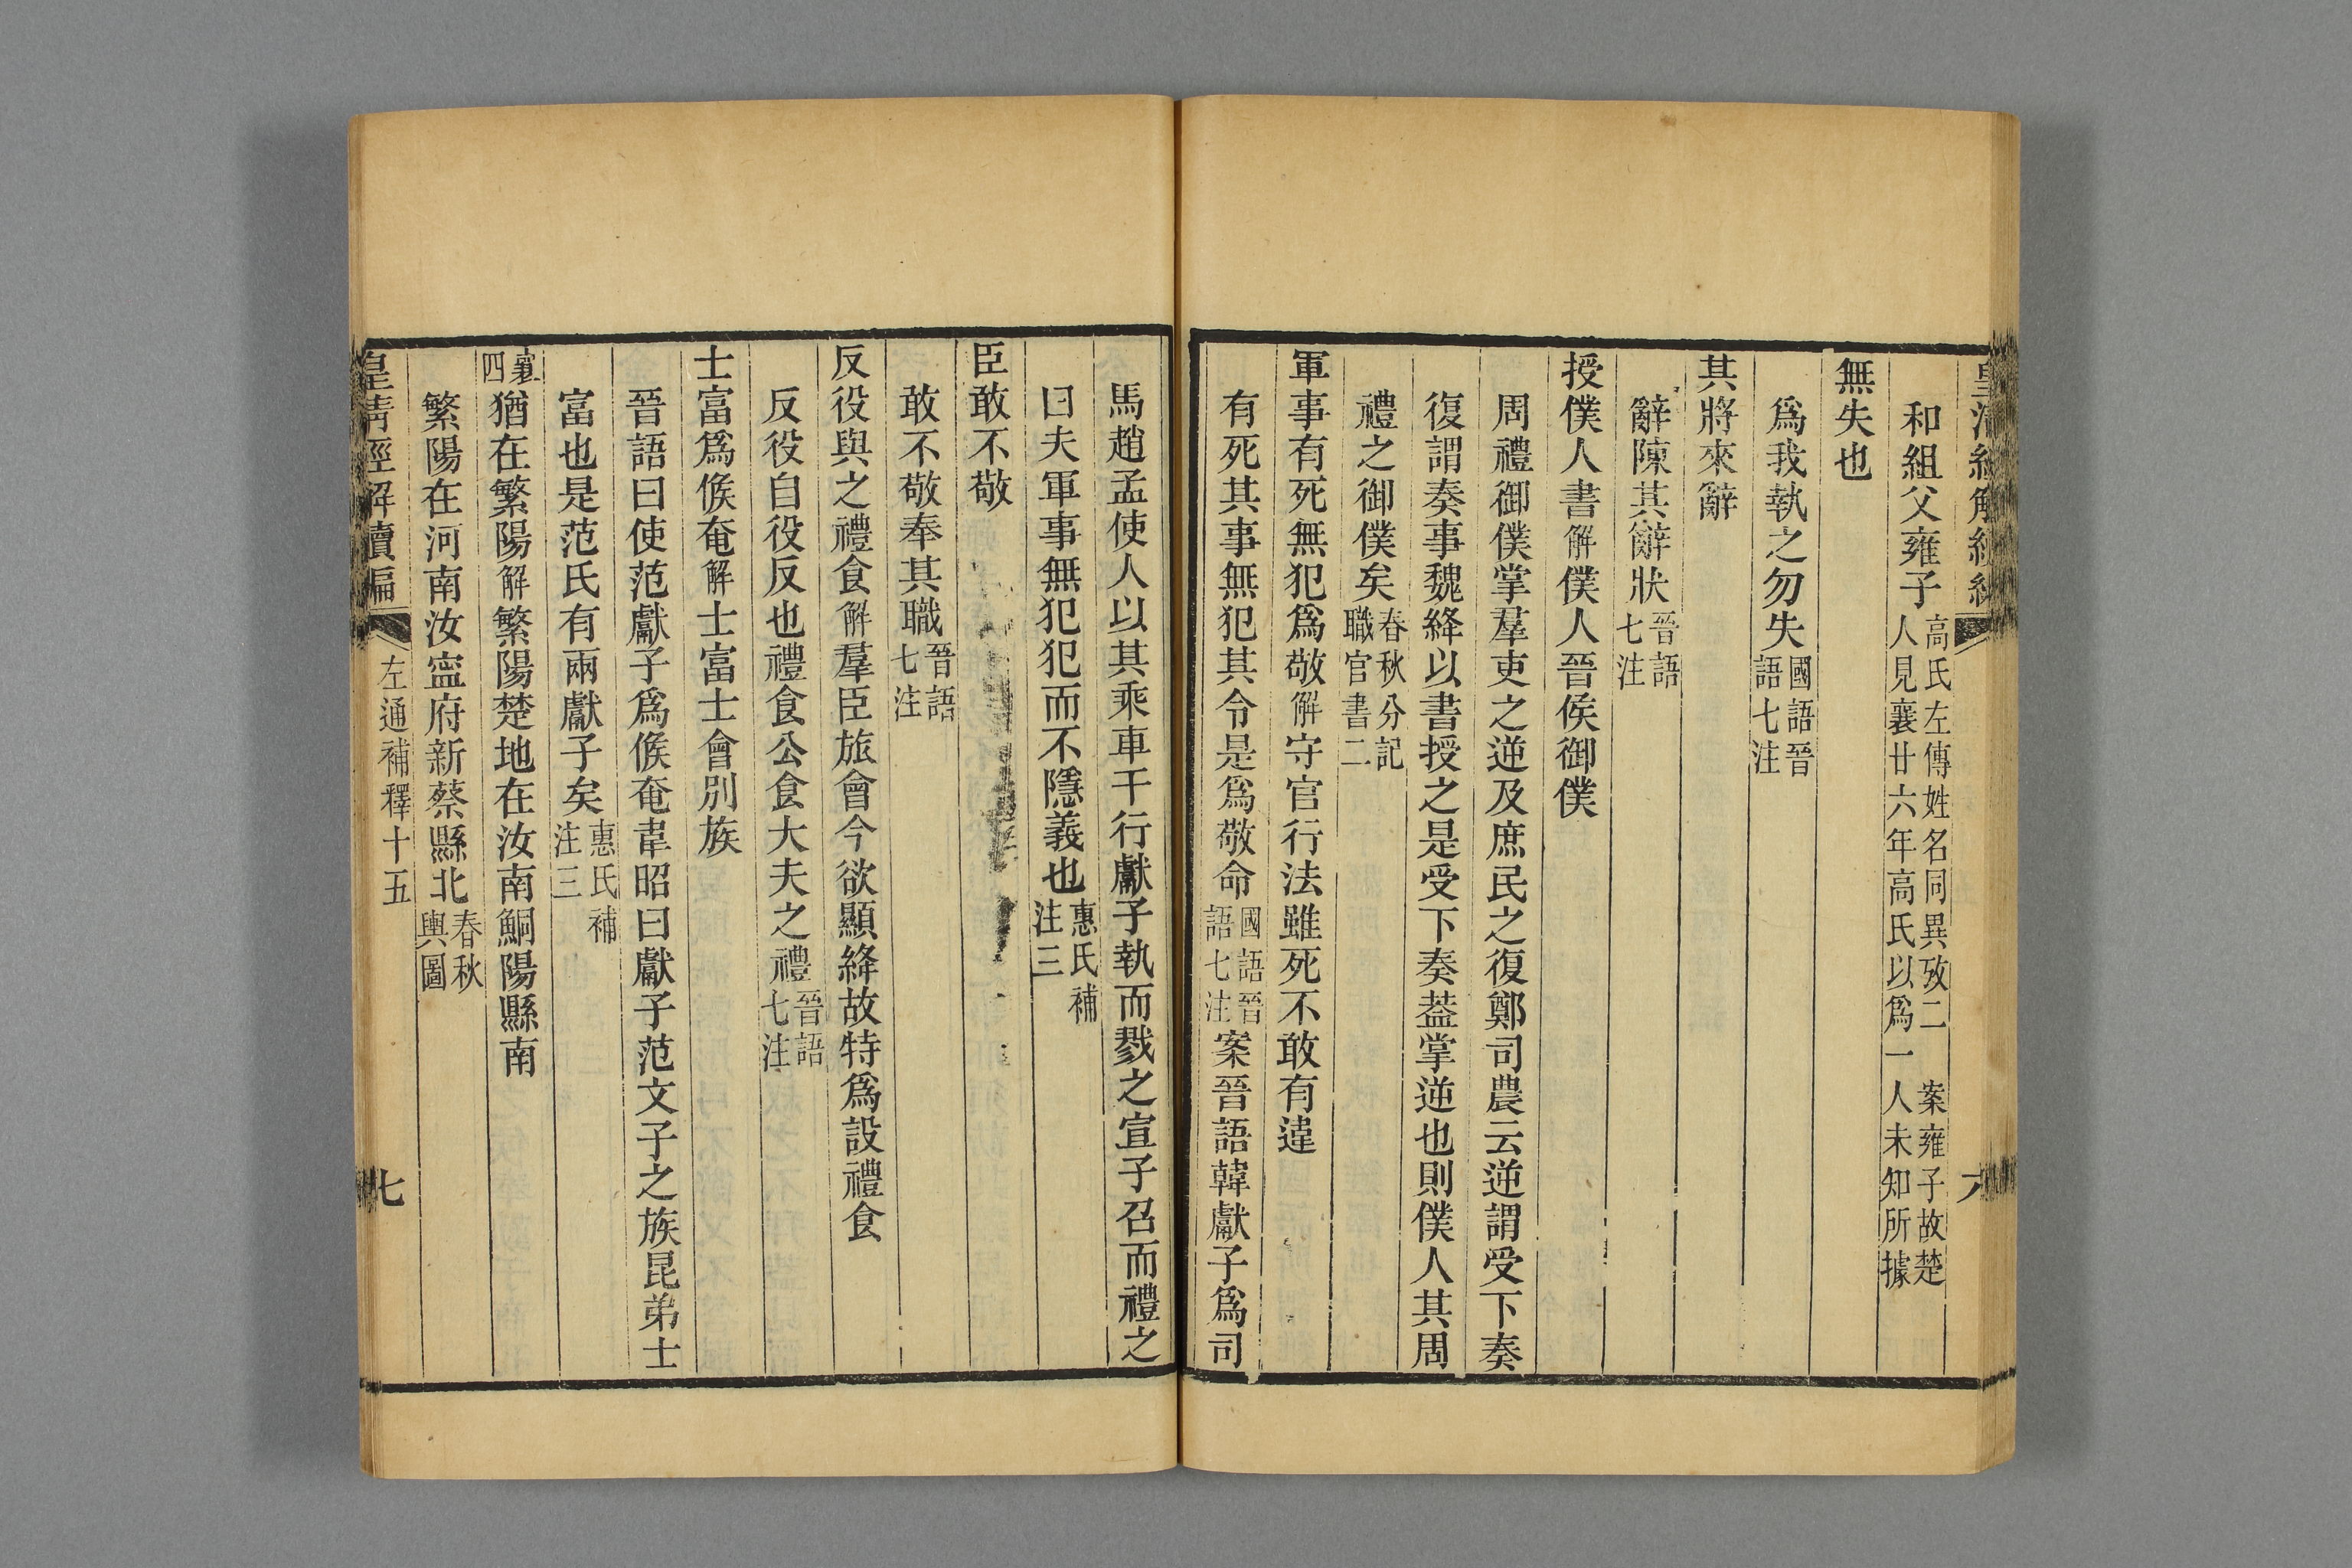 皇清經解續編
六
和組父雍子高氏左傳姓名同異攷二 案雍子故楚人見襄廿六年高氏以爲一人未知所據
無失也
爲我執之勿失國語晉語七注
其將來辭
辭陳其辭狀晉語七注
授僕人書解僕人晉侯御僕
周禮御僕掌羣吏之逆及庶民之復鄭司農云逆謂受下奏
復謂奏事魏絳以書授之是受下奏葢掌逆也則僕人其周
禮之御僕矣春秋分記職官書二
軍事有死無犯爲敬解守官行法雖死不敢有違
有死其事無犯其令是爲敬命國語晉語七注案晉語韓獻子爲司
馬趙孟使人以其乘車干行獻子執而戮之宣子召而禮之
曰夫軍事無犯犯而不隱義也惠氏補注三
臣敢不敬
敢不敬奉其職晉語七注
反役與之禮食解羣臣旅會今欲顯絳故特爲設禮食
反役自役反也禮食公食大夫之禮晉語七注
士富爲候奄解士富士會別族
晉語曰使范獻子爲候奄韋昭曰獻子范文子之族昆弟士
富也是范氏有兩獻子矣惠氏補注三
襄四猶在繁陽解繁陽楚地在汝南鮦陽縣南
繁陽在河南汝寍府新蔡縣北春秋輿圖
皇清經解續編
左通補釋十五
七